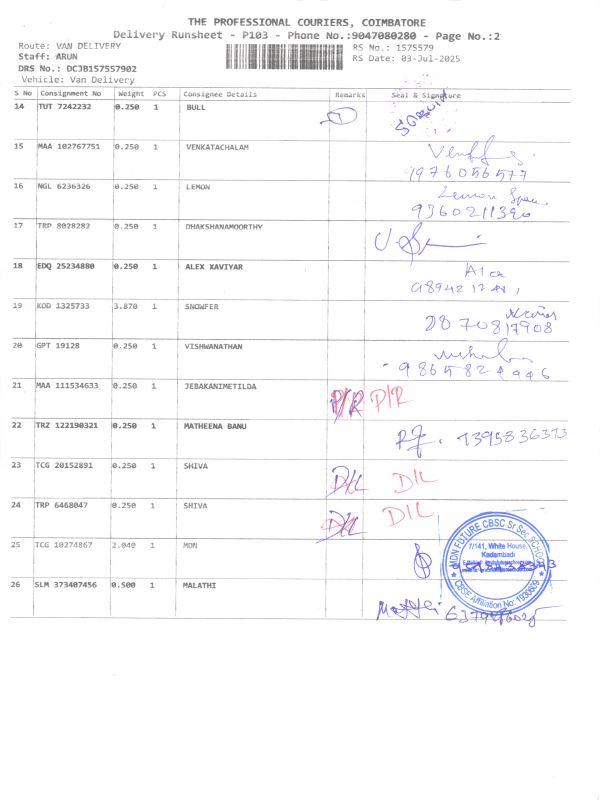 THE PROFESSIONAL COURIERS, COIMBATORE
Delivery Runsheet - P103 - Phone No.:9047080280 - Page No.:2
Route: VAN DELIVERY
RS No.: 1575579
Staff: ARUN
RS Date: 03-Jul-2025
DRS No.: DCJB157557902
Vehicle: Van Delivery
S No Consignment No Weight PCS Consignee Details Remarks Seal & Signature
14 TUT 7242232 0.250 1 BULL
15 MAA 102767751 0.250 1 VENKATACHALAM
9976056577
16 NGL 6236326 0.250 1 LEMON
9360211390
17 TRP 8028282 0.250 1 DHAKSHANAMOORTHY
18 EDQ 25234880 0.250 1 ALEX XAVIYAR
19 KOD 1325733 3.870 1 SNOWFER
20 GPT 19128 0.250 1 VISHWANATHAN
21 MAA 111534633 0.250 1 JEBAKANIMETILDA P/R P/R
22 TRZ 122190321 0.250 1 MATHEENA BANU
23 TCG 20152891 0.250 1 SHIVA D/L D/L
24 TRP 6468047 0.250 1 SHIVA D/L D/L
25 TCG 10274867 2.040 1 MDN
MDN FUTURE CBSC Sr Sec SCHOOL
7/141, White House,
Kadambadi
CBSE Affiliation No: 1930669
26 SLM 373407456 0.500 1 MALATHI